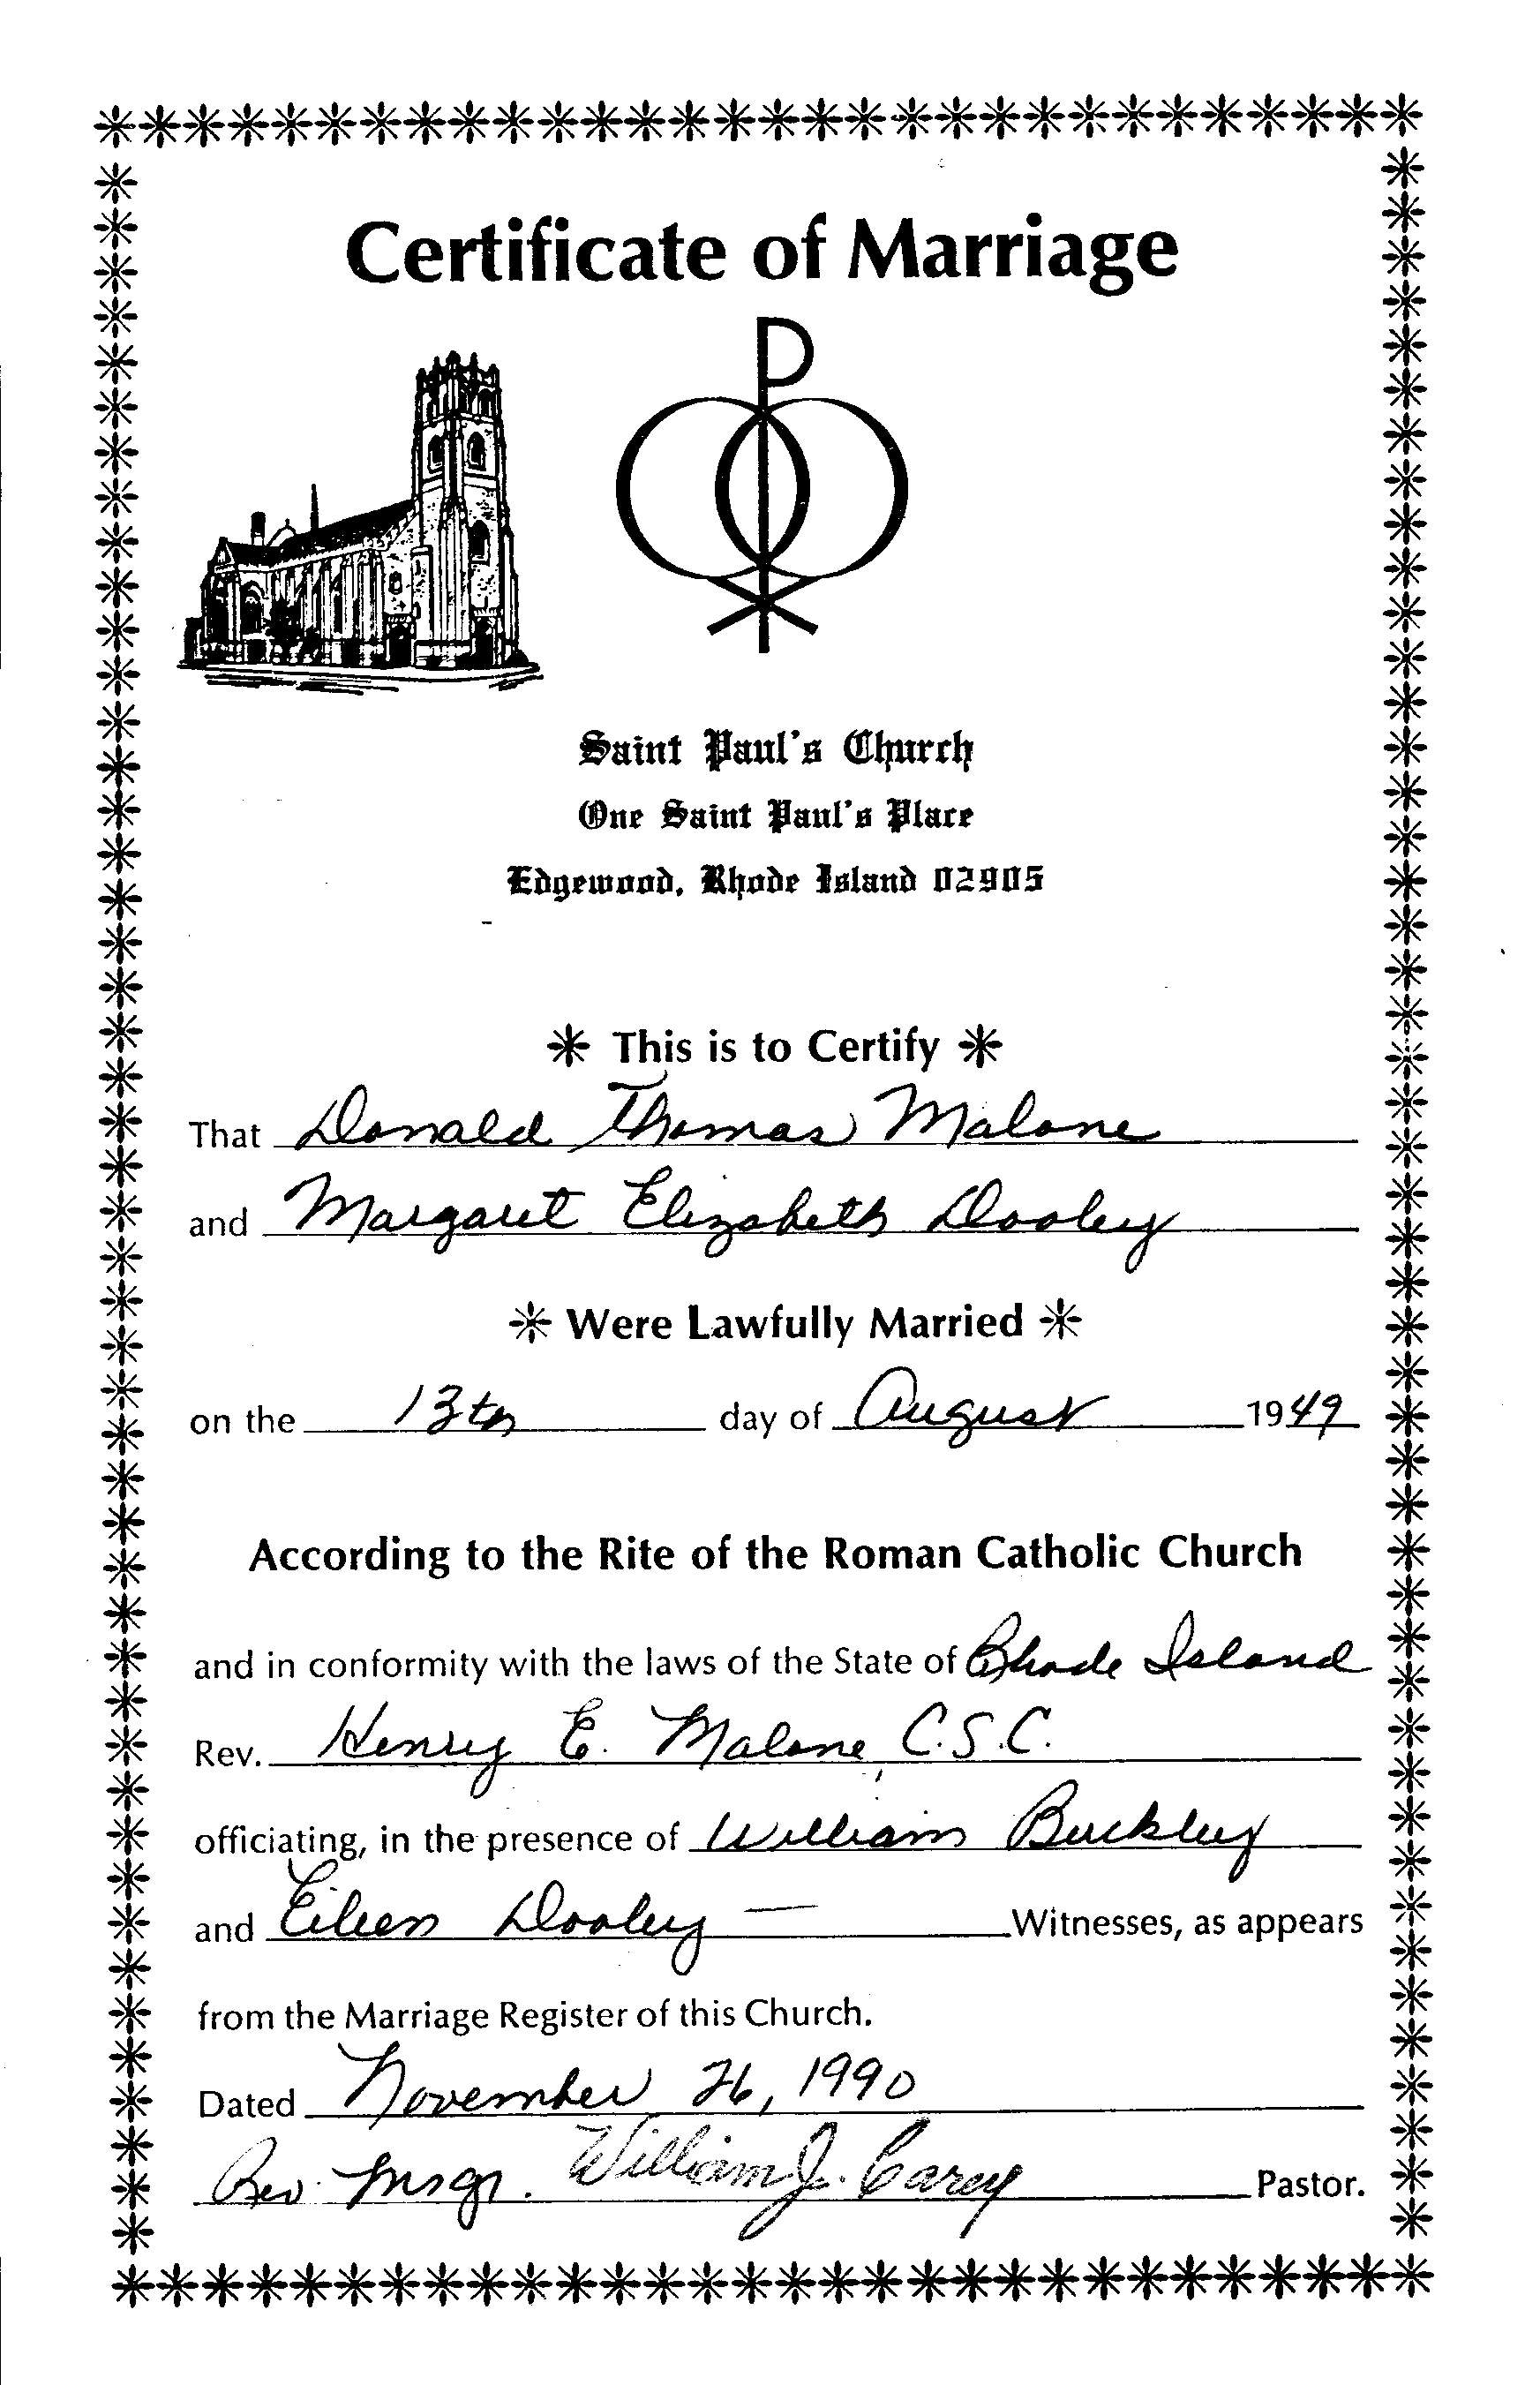 Certificate of Marriage
Saint Paul's Church
One Saint Paul's Place
Edgewood, Rhode Island 02905
* This is to Certify *
That Donald Thomas Malone
and Margaret Elizabeth Dooley
* Were Lawfully Married *
on the 13th day of August 1949
According to the Rite of the Roman Catholic Church
and in conformity with the laws of the State of Rhode Island
Rev. Henry E. Malone, C.S.C.
officiating, in the presence of William Buckley
and Eileen Dooley — Witnesses, as appears
from the Marriage Register of this Church.
Dated November 26, 1990
Rev. Msgr. William J. Carey Pastor.